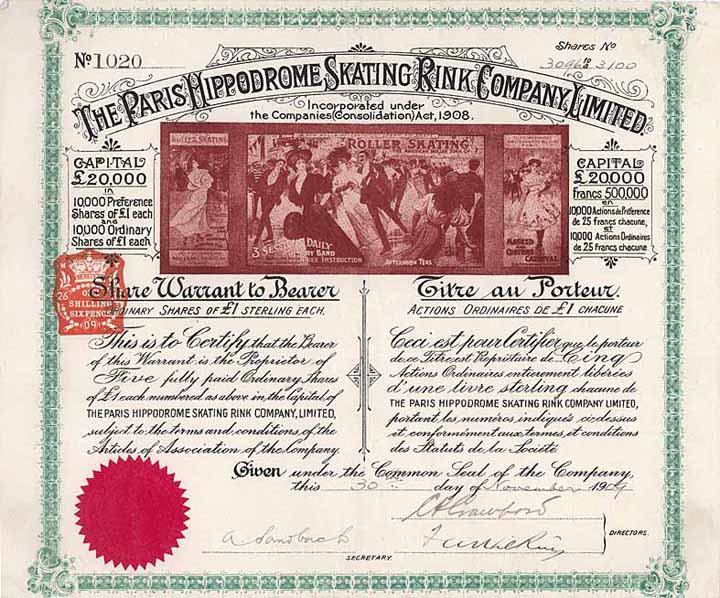 No 1020
Shares No
3096 to 3100
THE PARIS HIPPODROME SKATING RINK COMPANY, LIMITED.
Incorporated under
the Companies (Consolidation) Act, 1908.
CAPITAL
£20,000
in
10,000 Preference
Shares of £1 each
and
10,000 Ordinary
Shares of £1 each
ROLLER SKATING
ROLLER SKATING
THE AMERICAN ROLLER RINK
3 SESSIONS DAILY
BAND
FREE INSTRUCTION
AFTERNOON TEAS
MASKED
AND
CARNIVAL
CAPITAL
£20,000
Francs 500,000
en
10,000 Actions de Préférence
de 25 francs chacune,
et
10,000 Actions Ordinaires
de 25 francs chacune
26
SHILLING
SIXPENCE
09
Share Warrant to Bearer
ORDINARY SHARES OF £1 STERLING EACH.
This is to Certify, that the Bearer
of this Warrant is the Proprietor of
Five fully paid Ordinary Shares
of £1 each numbered as above in the Capital of
THE PARIS HIPPODROME SKATING RINK COMPANY, LIMITED,
subject to the terms and conditions of the
Articles of Association of the Company.
Titre au Porteur.
ACTIONS ORDINAIRES DE £1 CHACUNE
Ceci est pour Certifier que le porteur
de ce Titre est Propriétaire de Cinq
Actions Ordinaires entièrement libérées
d'une livre sterling chacune de
THE PARIS HIPPODROME SKATING RINK COMPANY LIMITED,
portant les numéros indiqués ci-dessus
et conformément aux termes et conditions
des Statuts de la Société
Given under the Common Seal of the Company,
this 30th day of November 1909
A Sandbach
SECRETARY.
DIRECTORS.